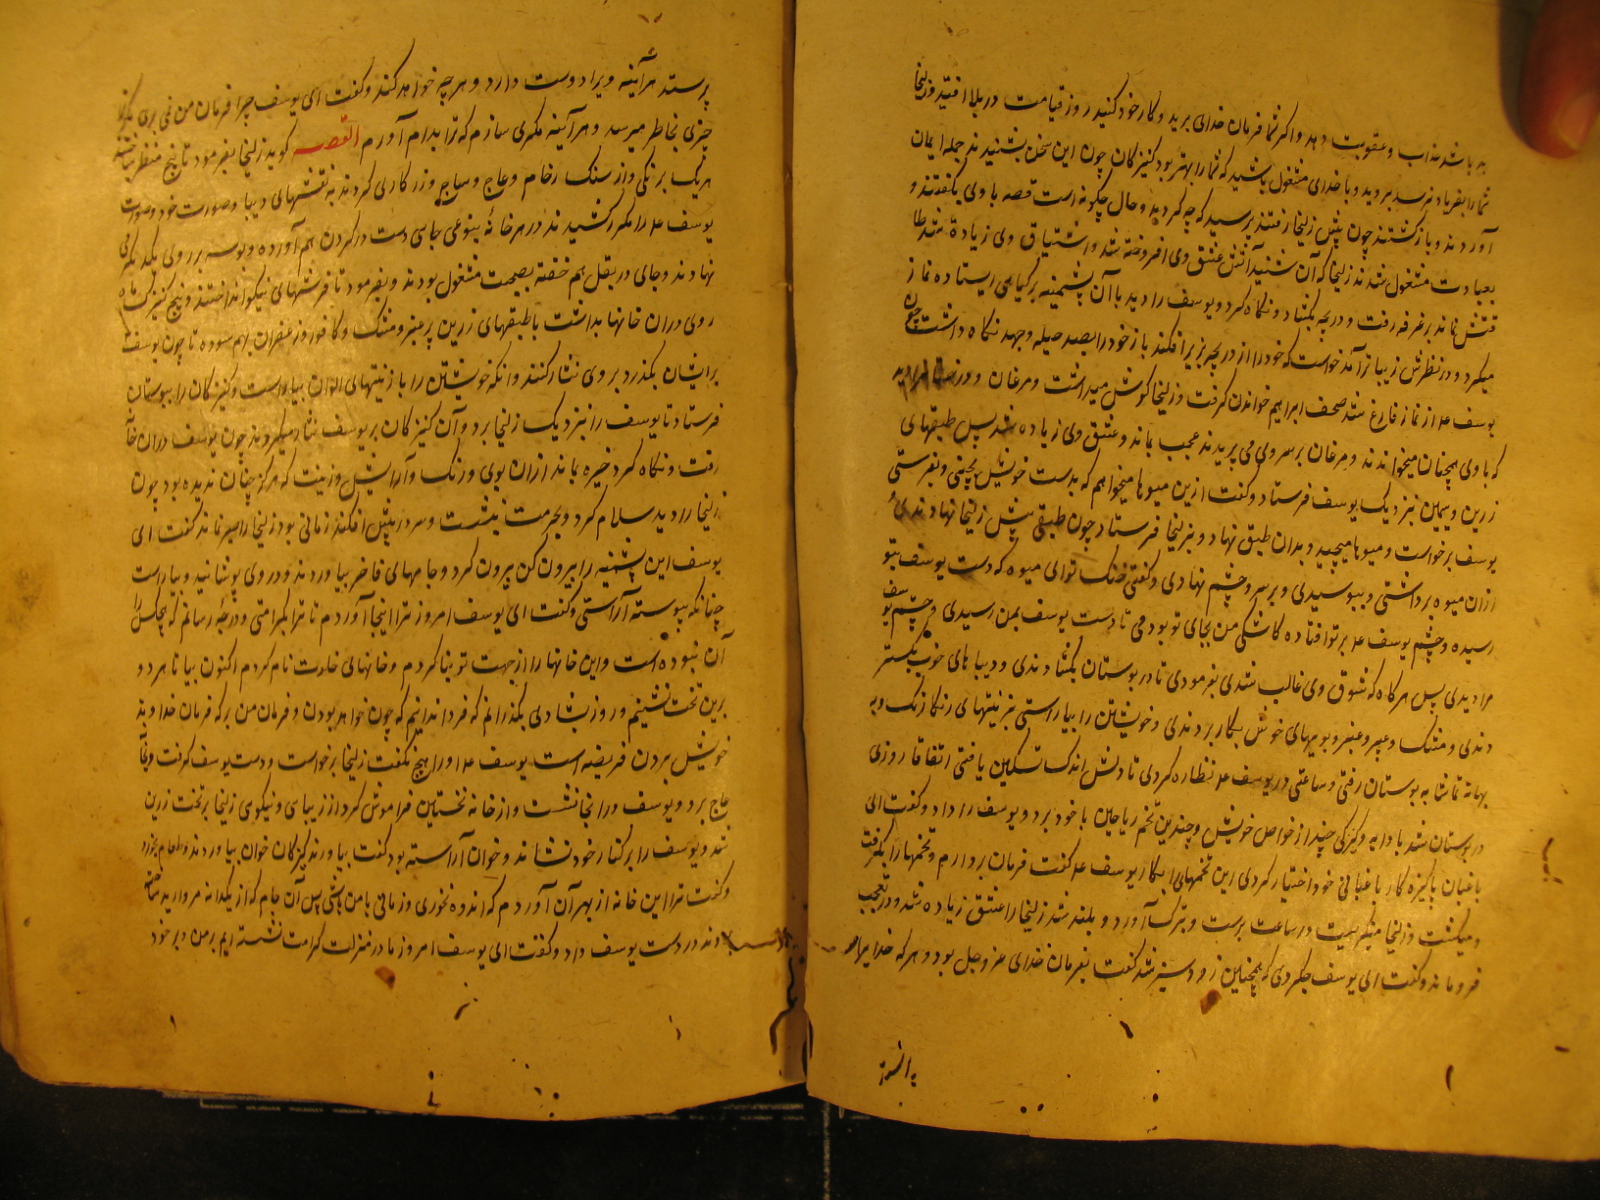 به باشد عذاب و عقوبت دهد و اگر شما فرمان خدای برید و کار خود کنید روز قیامت در بلا افتید زلیخا
شما را بفریاد نرسد بروید و با خدای مشغول باشید که شما را بهتر بود کنیزکان چون این سخن بشنیدند جمله ایمان
آوردند و بازگشتند چون پیش زلیخا رفتند پرسید که چه کردید و حال چگونه است قصه با وی بگفتند و
بعبادت مشغول شدند زلیخا که آن شنید آتش عشق وی افروخته شد و اشتیاق وی زیاده شد
بر غرفه رفت و دریچه بگشاد و نگاه کرد و یوسف را دید با آن پشمینه بر گیاهی ایستاده نماز
میکرد و در نظرش زیباتر آمد خواست که خود را از دریچه بزیر افکند باز خود را بصد حیله و جهد نگاه داشت چون
یوسف ع از نماز فارغ شد صحف ابراهیم خواندن گرفت و زلیخا گوش میداشت و مرغان
که با وی همچنان میخواندند و مرغان بر سر وی می پریدند عجب بماند و عشق وی زیاده شد پس طبقهای
زرین و سیمین بنزدیک یوسف فرستاد و گفت ازین میوها میخواهم که بدست خویش بچینی و بفرستی
یوسف برخواست و میوها میچیید و بدان طبق نهاد و بزلیخا فرستاد چون طبق پیش زلیخا نهادندی
ازان میوه برداشتی و ببوسیدی و بر سر و چشم نهادی و گفتی خنک توای میوه که دست یوسف بتو
رسیده و چشم یوسف ع بر تو افتاده کاشکی من بجای تو بودمی تا دست یوسف بمن رسیدی و چشم یوسف
مرا دیدی پس هر گاه که شوق وی غالب شدی بفرمودی تا در بوستان بگشادندی و دیباهای خوب بگستر
دندی و مشک و عبیر و عنبر و بویهای خوش بکار بردندی و خویشتن را بیاراستی بزینتهای رنگارنگ و به
بهانه تماشا به بوستان رفتی و ساعتی در یوسف ع نظاره کردی تا دلش اندک تسکین یافتی اتفاقا روزی
در بوستان شد با دایه و کنیزکی چند از خواص خویش و چندین تخم ریاحین با خود برد و یوسف را داد و گفت ای
باغبان پاکیزه کار باغبانی خود اختیار کردی این تخمهای را بکار یوسف ع گفت فرمان بردارم و تخمها را بگرفت
و میکشت و زلیخا مینگریست در ساعت برست و برگ آورد و بلند شد زلیخا را عشق زیاده شد و در تعجب
فرو ماند و گفت ای یوسف چکردی که همچنین زود سبز شد گفت بفرمان خدای عز و جل بود و هر که خدا یرا
پرستد هر آینه ویرا دوست دارد و هر چه خواهد کند و گفت ای یوسف چرا فرمان من نمی بری
چیزی بخاطر میرسد و هر آینه مکری سازم که ترا بدام آورم القصه گوید زلیخا بفرمود تا پنج منظر ساختند
هر یک برنگی و از سنگ رخام و عاج و ساج و زرکاری کردند به نقشهای دیبا و صورت خود و صورت
یوسف ع را مکرر کشیدند در هر خانه بنوعی جایی دست در گردن هم آورده و بوسه بر روی یکدیگر
نهادند و جای در بغل هم خفته بصحبت مشغول بودند و بفرمود تا فرشهای نیکو انداختند و پنج کنیزک ماه
روی دران خانها بداشت با طبقهای زرین پر عنبر و مشک و کافور و زعفران بهم سوده تا چون یوسف
برایشان بگذرد بر وی نثار کنند وانکه خویشتن را با زینتهای الوان بیاراست و کنیزکان را ببوستان
فرستاد تا یوسف را بنزدیک زلیخا برد و آن کنیزکان بر یوسف نثار میکردند چون یوسف دران خانه
رفت و نگاه کرد خیره بماند ازان بوی و رنگ و آرایش و زینت که هرگز چنان ندیده بود چون
زلیخا را دید سلام کرد و بحرمت بنشست و سر در پیش افکند زمانی بود زلیخا را صبر نماند گفت ای
یوسف این پشمینه را بیرون کن بیرون کرد و جامهای فاخر بیاوردند و در وی پوشانید و بیاراست
چنانکه پیوسته آراستی و گفت ای یوسف امروز ترا اینجا آوردم تا ترا بکرامتی و درجه رسانم که هیچکس را
آن نبوده است و این خانها را از جهت تو بنا کردم و خانهای خلوت نام کردم اکنون بیا تا هر دو
برین تخت نشینیم و روز بشادی بگذرانیم که فردا ندانیم که چون خواهد بودن و فرمان من بر که فرمان خداوند
خویش بردن فریضه است یوسف ع او را هیچ نگفت زلیخا برخواست و دست یوسف گرفت
عاج برد و یوسف در انجا نشست و از خانه نخستین فراموش کرد از زیبایی و نیکوی زلیخا بر تخت زرین
شد و یوسف را بر کنار خود نشاند و خوان آراسته بود گفت بیاورند کنیزکان خوان بیاوردند و طعام بخورد
و گفت ترا این خانه از بهر آن آوردم که اندوه نخوری و زمانی با من باشی پس آن جام که از یکدانه مروارید ساخته
بودند در دست یوسف داد و گفت ای یوسف امروز ما در منزلت کرامت نشسته ایم بر من و بر خود